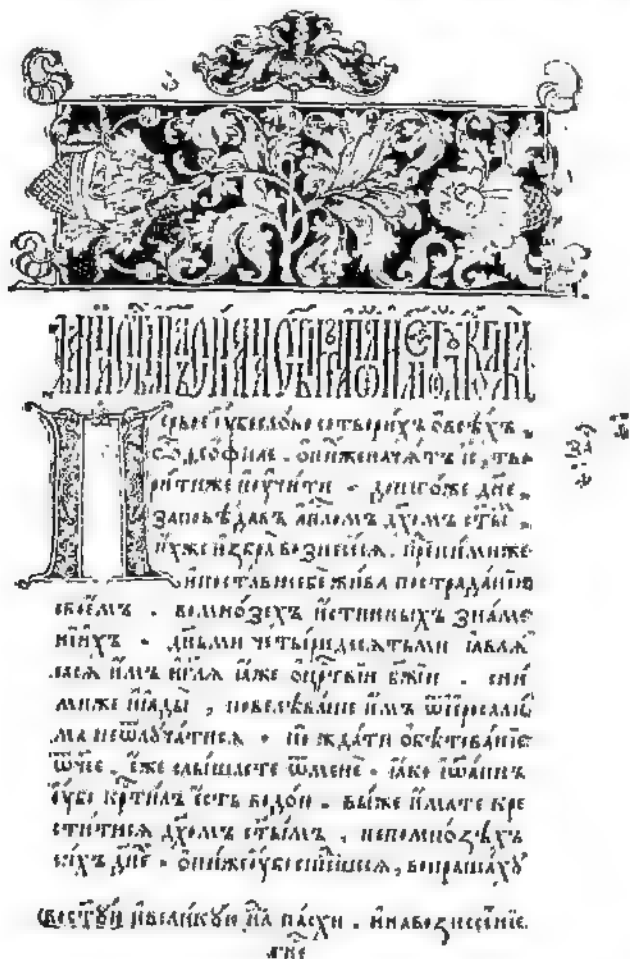 Первоє ѹ҆бо сло́во сотвори́хъ ѡ҆ всѣ́хъ,
ѽ ѳео́филе. ѡ҆ ни́хже нача́тъ і҆с҃, тво
ри́тиже и҆ ѹ҆чи́ти. до него́же дн҃е,
заповѣ́давъ а҆пⷭ҇ломъ дх҃омъ ст҃ы́
и҆́хже и҆збра̀ вознесе́сѧ. пред ни́миже
и҆ поста́ви себѐ жи́ва по страда́нїи
своє́мъ. во мно́зѣхъ и҆́стинныхъ зна́ме
нїихъ. дньмѝ четы́ридесѧтьми ꙗ҆влѧ́
ѧсѧ и҆̀мъ и҆ гл҃ѧ ꙗ҆́же ѡ҆ црⷭ҇твїи бж҃їи. с ни́
миже и҆ ꙗ҆ды̀, повелѣва́ше и҆̀мъ ѿ і҆єрⷭ҇али́
ма не ѿлꙋча́тисѧ. но жда́ти ѡ҆бѣтова́нїє
ѿч҃еє, є҆́же слы́шасте ѿ менѐ. ꙗ҆́ко і҆ѡа́ннъ
ѹ҆́бо крⷭ҇ти́лъ є҆́сть водо́ю. вы́же и҆́мате кре
сти́тисѧ дх҃омъ ст҃ы́мъ, не по мно́зѣхъ
си́хъ дн҃е. ѡ҆ни́же ѹ҆́бо сше́дшесѧ, вопроша́хꙋ
во ст҃ꙋ́ю и҆ вели́кꙋю нⷣе па́схи. и҆ на вознесе́нїе
гн҃е